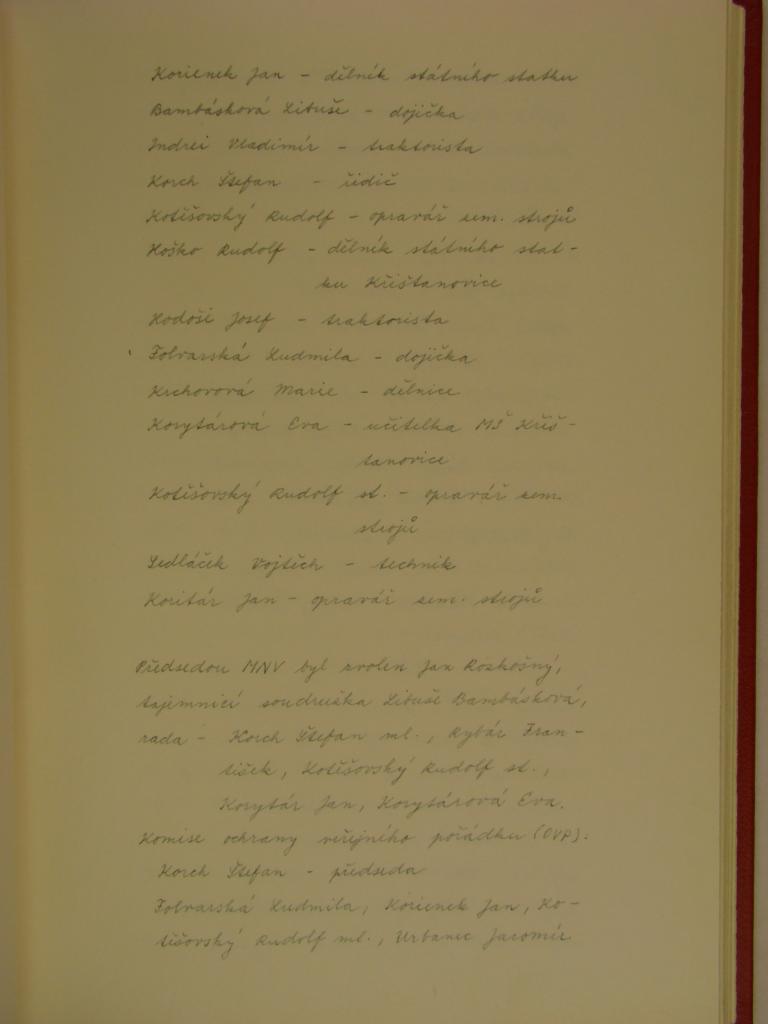 Korienek Jan - dělník státního statku
Bambásková Libuše - dojička
Indrei Vladimír - traktorista
Korch Štefan - řidič
Kotišovský Rudolf - opravář zem. strojů
Hoško Rudolf - dělník státního stat-
ku Křištanovice
Hodoši Josef - traktorista
Folvarská Ludmila - dojička
Krchovová Marie - dělnice
Korytárová Eva - učitelka MŠ Křiš-
tanovice
Kotišovský Rudolf st. - opravář zem.
strojů
Sedláček Vojtěch - technik
Koritár Jan - opravář zem. strojů
Předsedou MNV byl zvolen Jan Rozkošný,
tajemnicí soudružka Libuše Bambásková,
rada - Korch Štefan ml., Rybár Fran-
tišek, Kotišovský Rudolf st.,
Korytár Jan, Korytárová Eva.
Komise ochrany veřejného pořádku (OVP):
Korch Štefan - předseda
Folvarská Ludmila, Korienek Jan, Ko-
tišovský Rudolf ml., Urbanec Jaromír